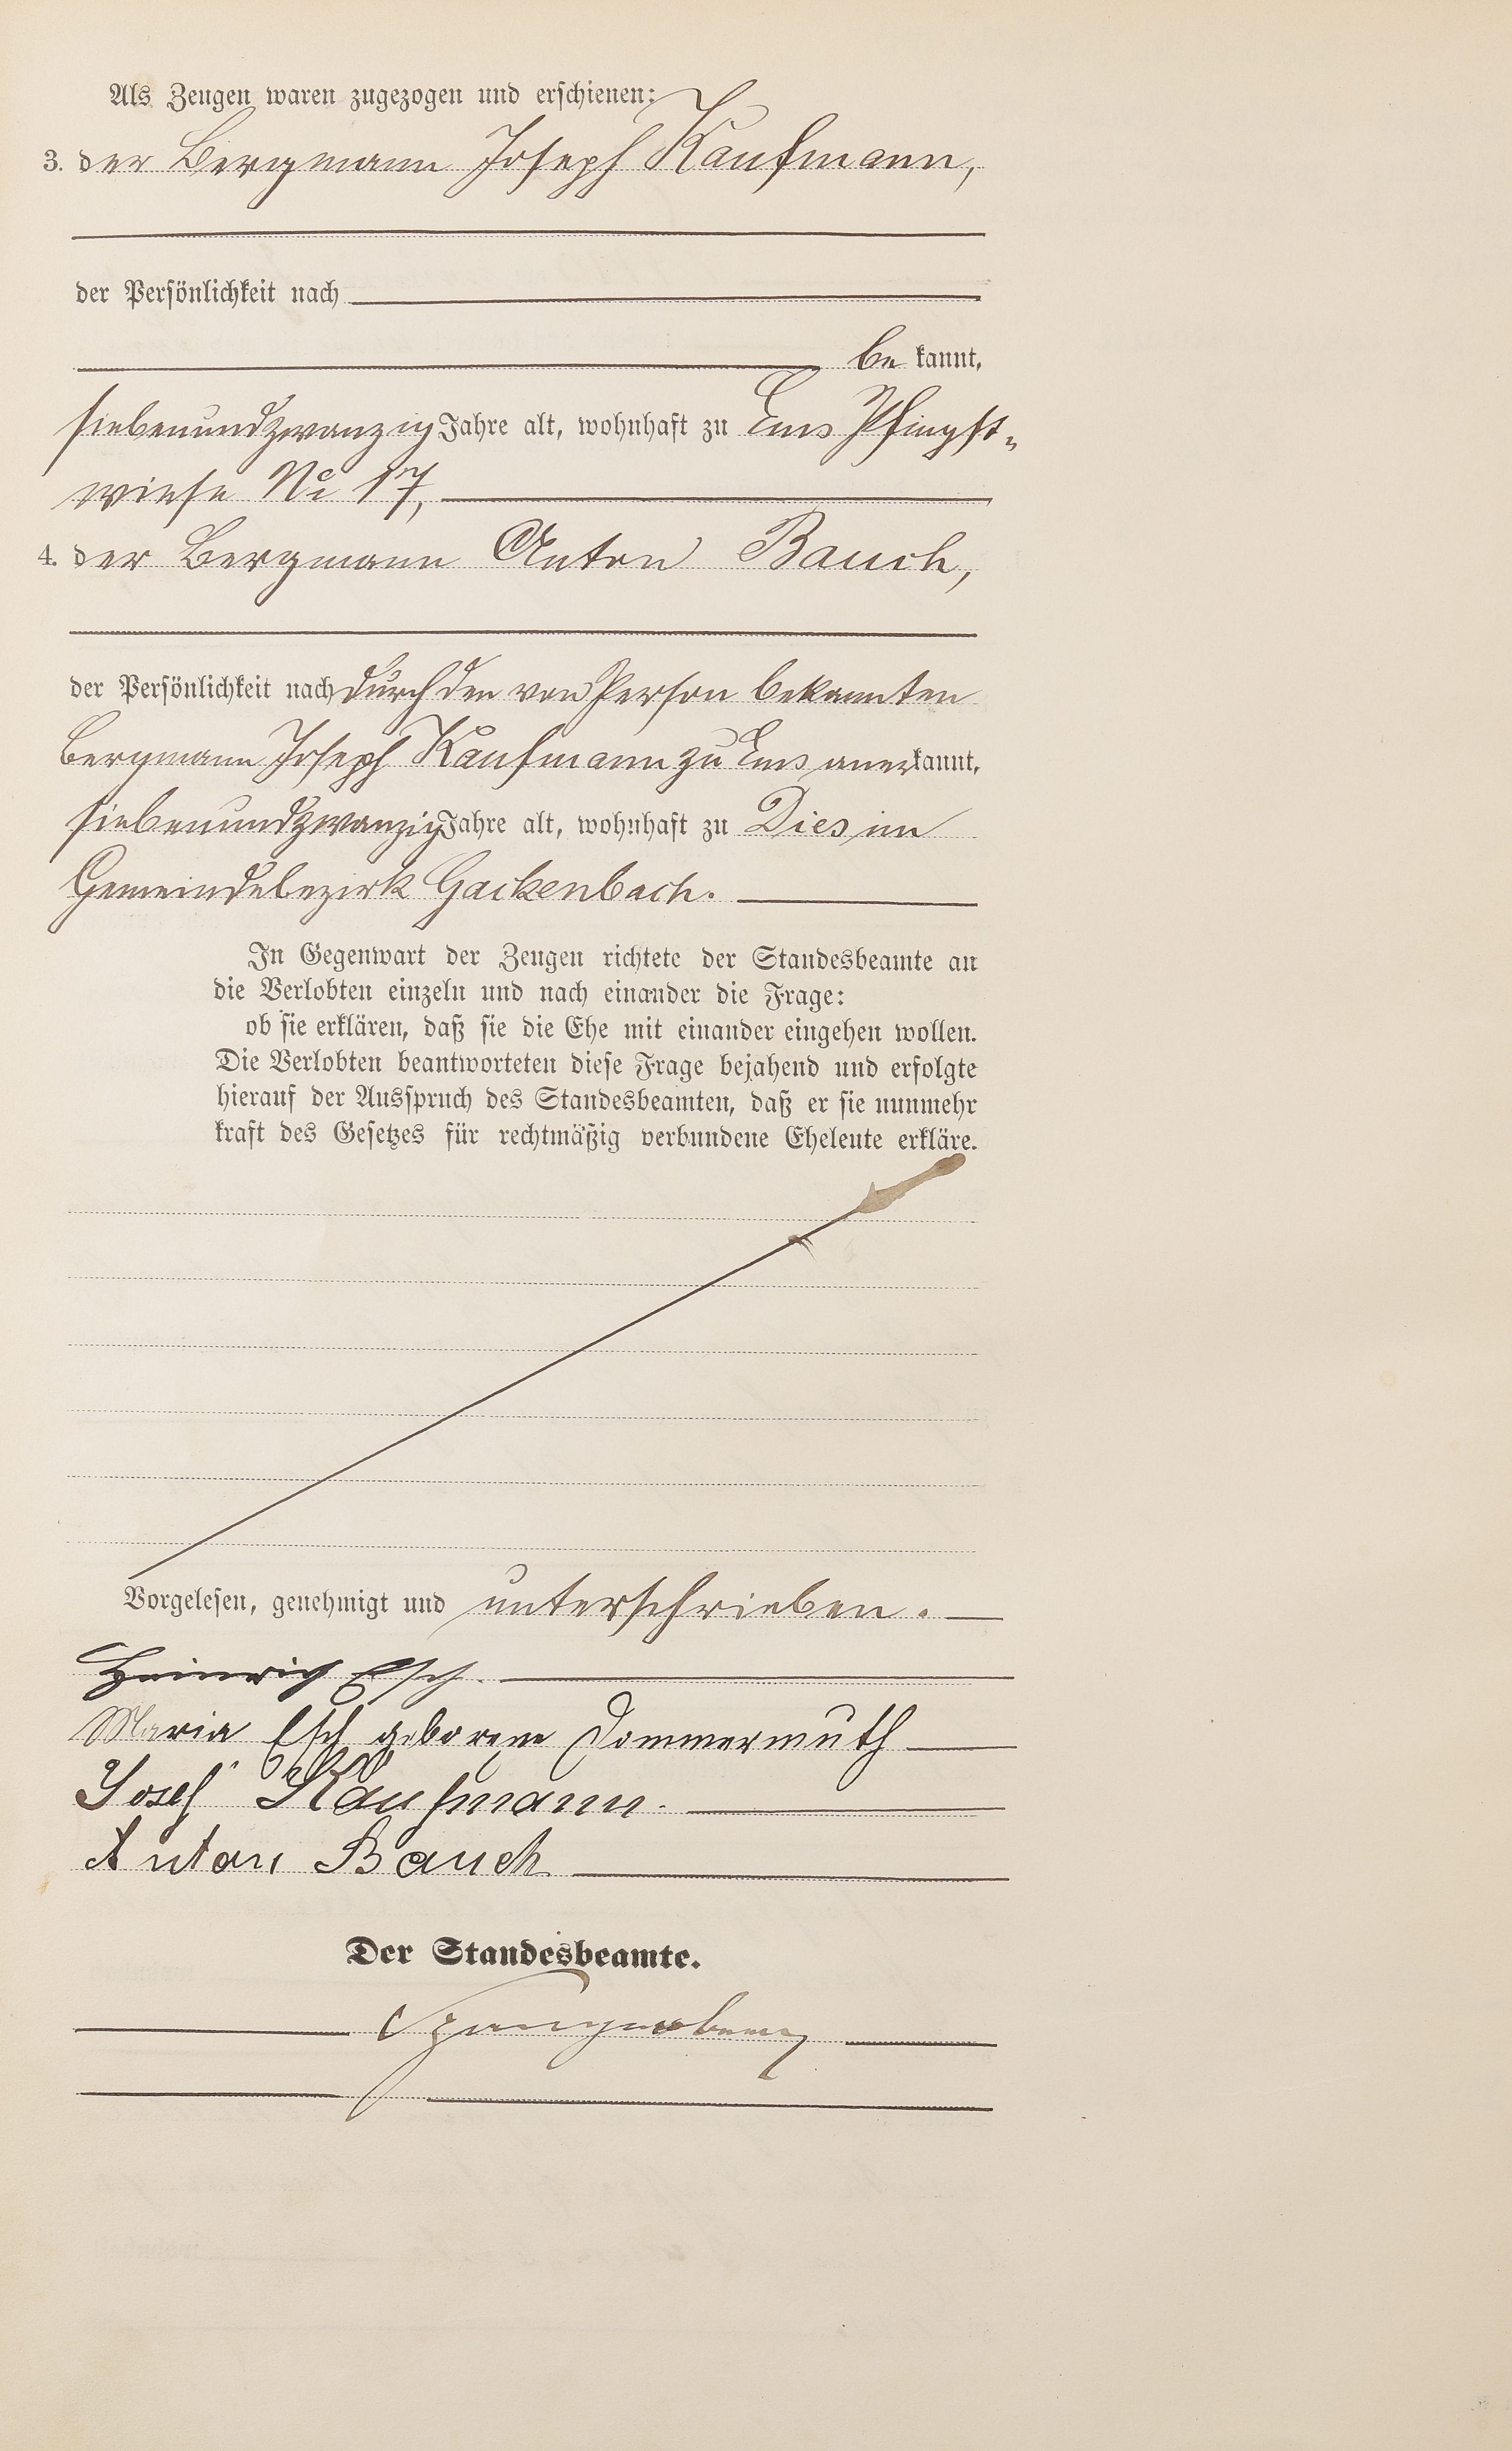 Als Zeugen waren zugezogen und erschienen:
3. der Bergmann Joseph Kaufmann,
der Persönlichkeit nach
be kannt,
siebenundzwanzig Jahre alt, wohnhaft zu Ems Pfingst-
wiese No 17,
4. der Bergmann Anton Bauch,
der Persönlichkeit nach durch den von Person bekannten
Bergmann Joseph Kaufmann zu Ems anerkannt,
siebenundzwanzig Jahre alt, wohnhaft zu Dies im
Gemeindebezirk Gackenbach.
In Gegenwart der Zeugen richtete der Standesbeamte an
die Verlobten einzeln und nach einander die Frage:
ob sie erklären, daß sie die Ehe mit einander eingehen wollen.
Die Verlobten beantworteten diese Frage bejahend und erfolgte
hierauf der Ausspruch des Standesbeamten, daß er sie nunmehr
kraft des Gesetzes für rechtmäßig verbundene Eheleute erkläre.
Vorgelesen, genehmigt und unterschrieben.
Heinrich Esch.
Maria Esch geborene Dommermuth
Josef Kaufmann.
Anton Bauch
Der Standesbeamte.